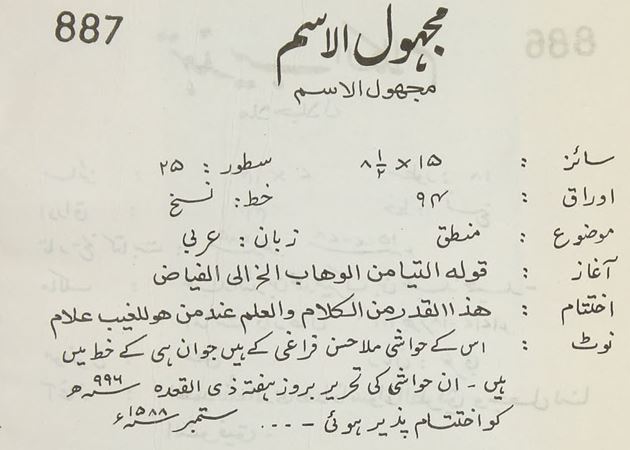 887
مجہول الاسم
مجھول الاسم
سائز : ۱۵ × ۸ ۱/۲ سطور : ۲۵
اوراق : ۹۴ خط : نسخ
موضوع : منطق زبان : عربی
آغاز : قوله التيا من الوهاب الخ الی الفیاض
اختتام : هذا القدر من الكلام والعلم عند من هو للغيب علام
نوٹ : اس کے حواشی ملا حسن فراغی کے ہیں جو ان ہی کے خط میں
ہیں - ان حواشی کی تحریر بروز ہفتہ ذی القعدہ سنہ ۹۹۶ھ
کو اختتام پذیر ہوئی - ... ستمبر سنہ ۱۵۸۸ء